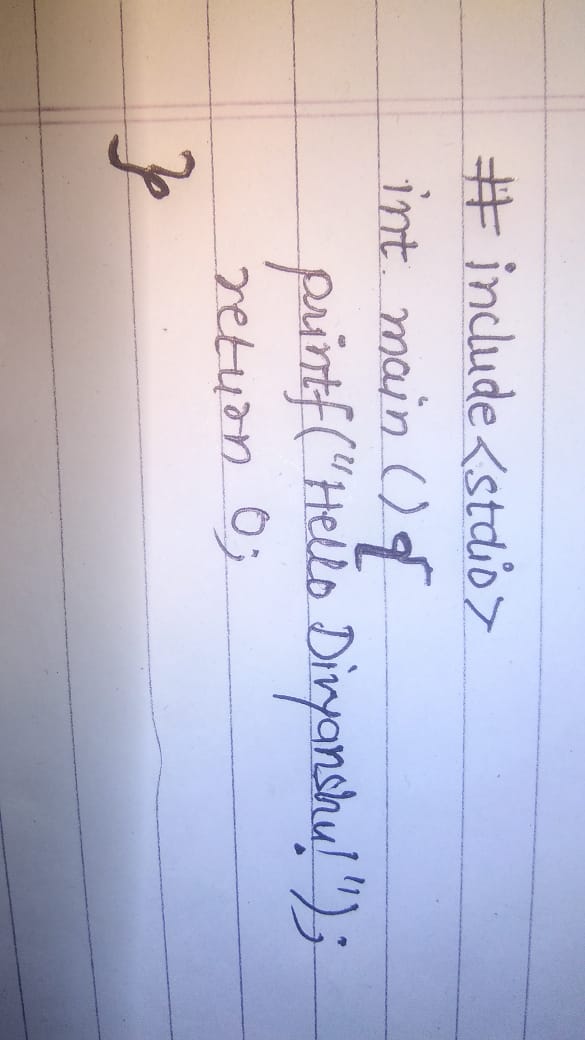 # include<stdio>
int main () {
printf("Hello Divyanshu!");
return 0;
}